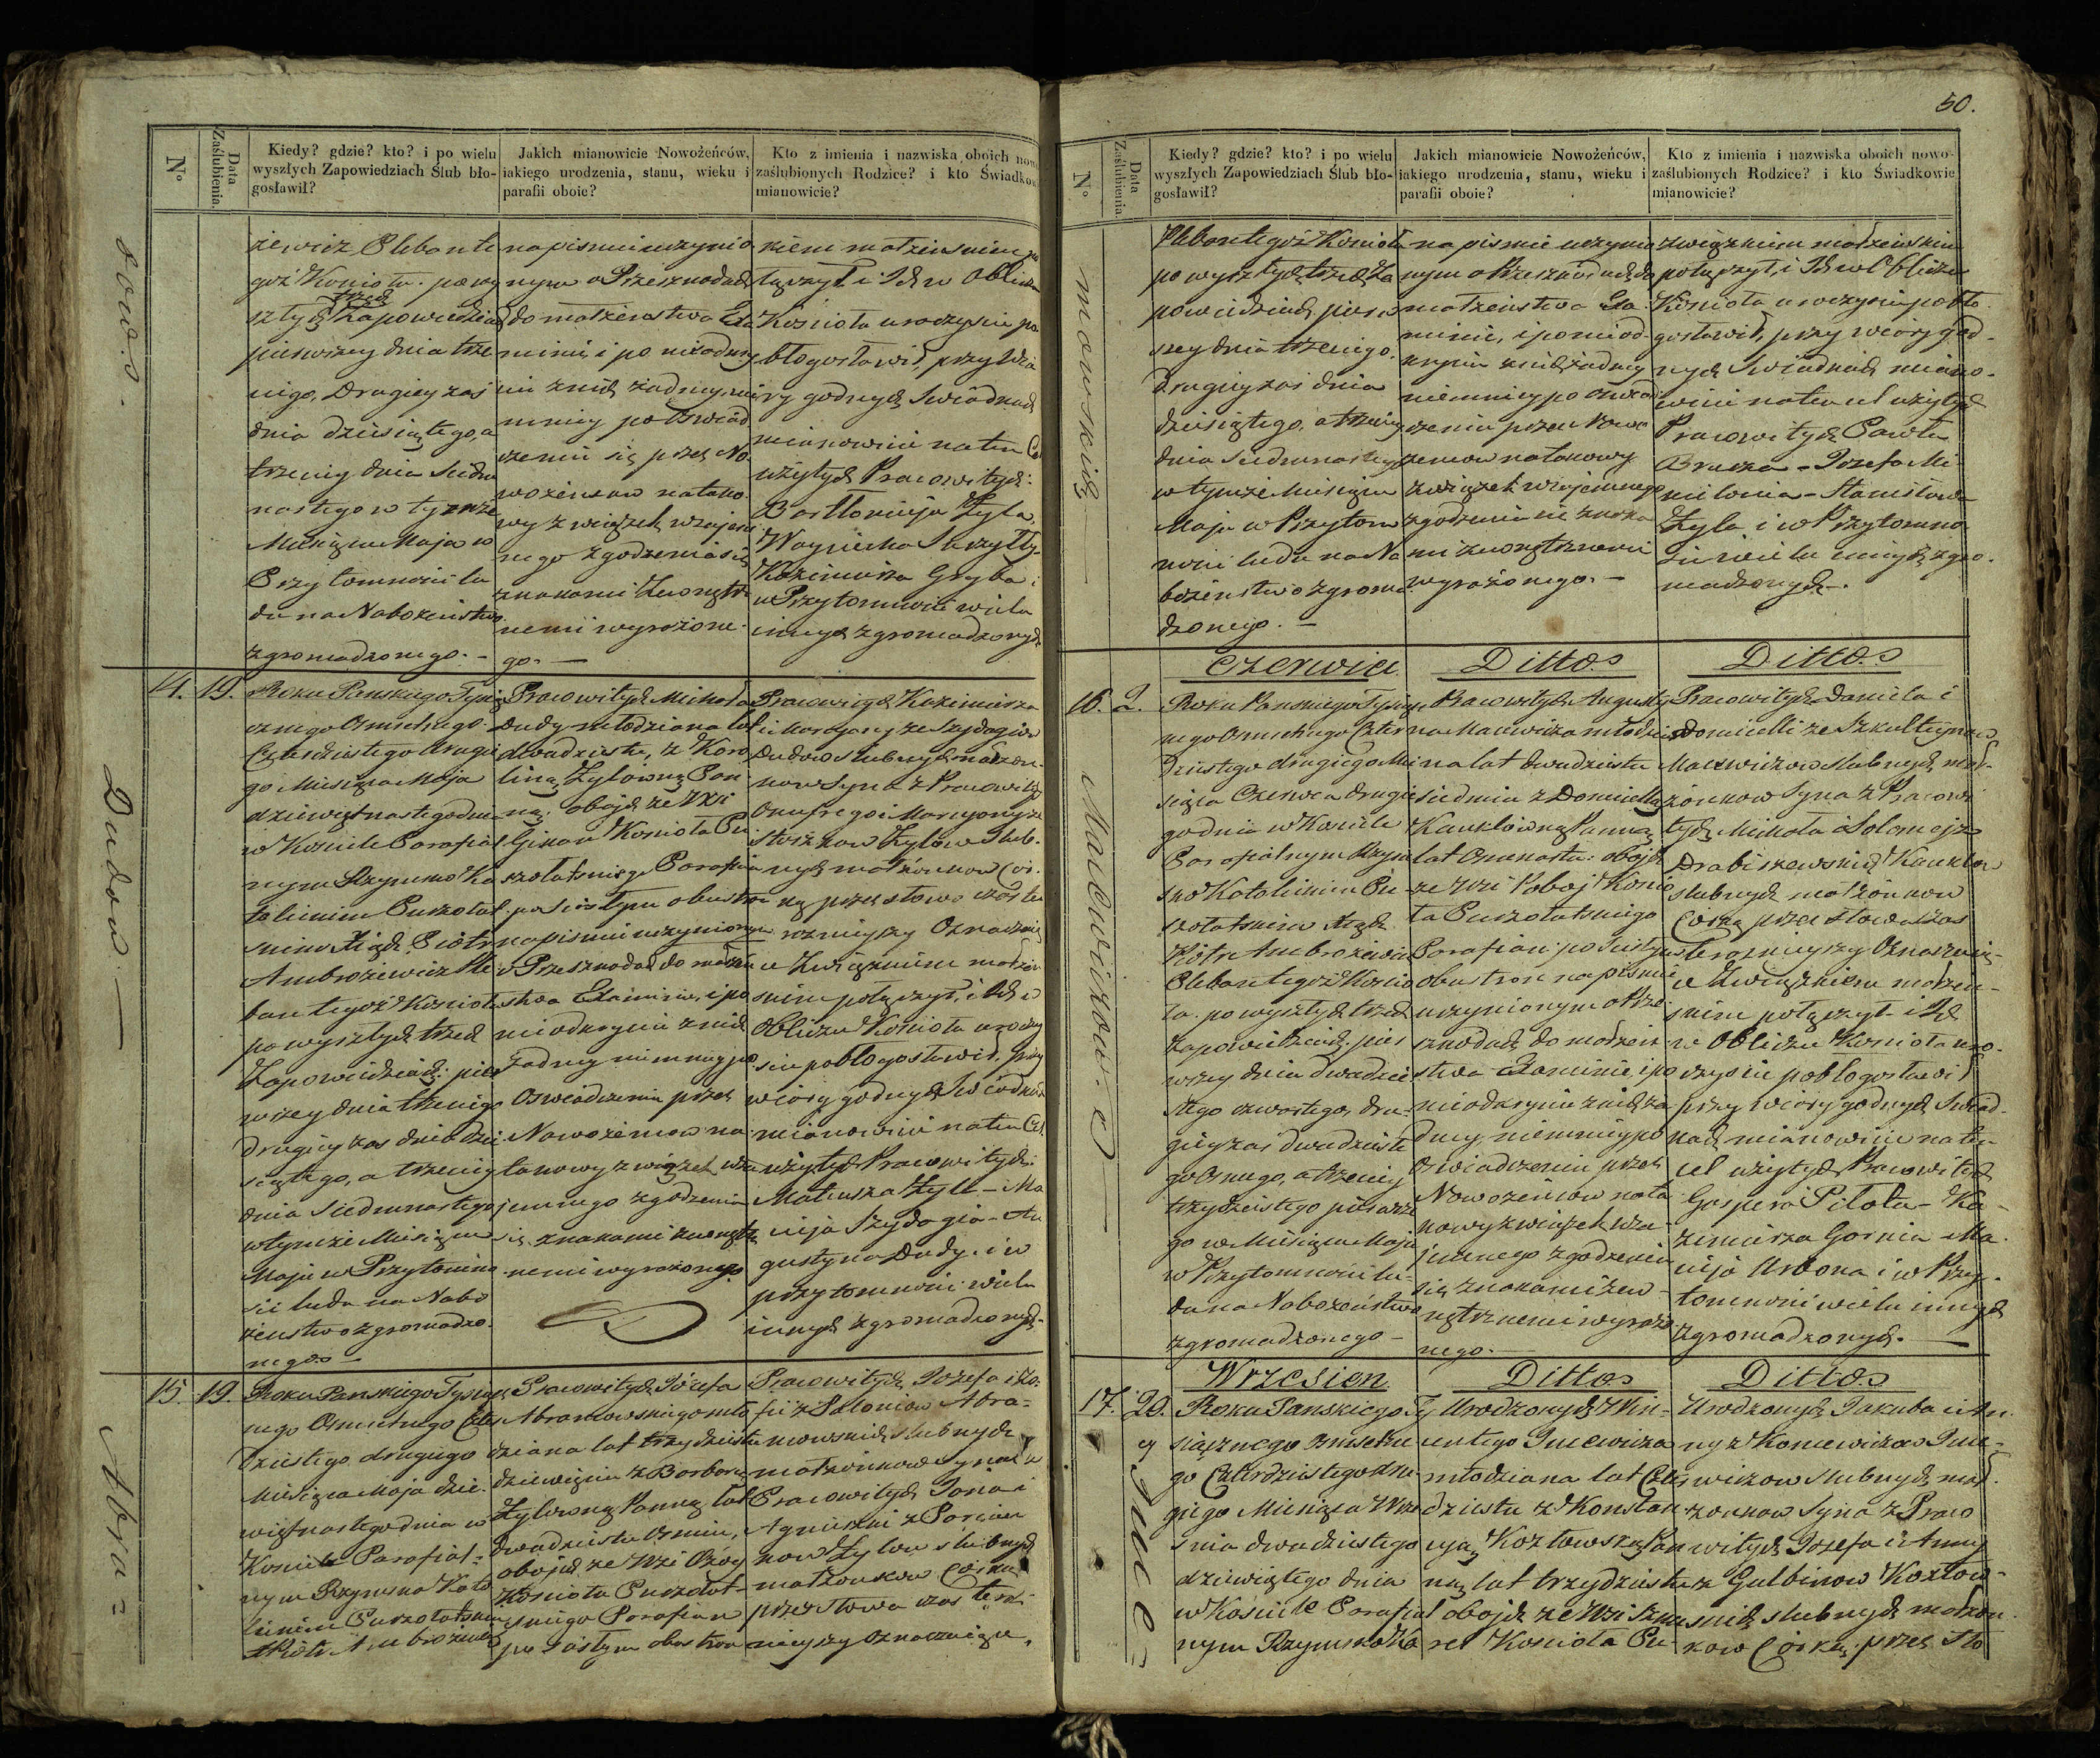 N°
Data Zaślubienia.
Kiedy? gdzie? kto? i po wielu
wyszłych Zapowiedziach Ślub bło-
gosławił?
Jakich mianowicie Nowożeńców,
jakiego urodzenia, stanu, wieku i
parafii oboie?
Kto z imienia i nazwiska oboich
zaślubionych Rodzice? i kto
mianowicie?
Plebante
goż Kościoła
trzech
Zapowiedziach
pierwszey dnia trze
ciego, Drugiey zaś
dnia dziesiątego, a
trzeciey dnia siedm
nastego w tymże
Miesiącu Maja w
Przytomności lu
du na Nabożeństwo
zgromadzonego. -
na pismie uczynio
nym o Przeszkodach
do małżenstwa
wożencow na tako
wy związek wzajem
nego zgodzenia się
znakami Zewnętrz
nemi wyrażone
go. —
kiem małżenskim
łączył i Ich w Oblicz
Kościoła uroczyscie po
błogosławił, przy Wia
ry godnych Swiadkach
mianowicie na ten
użytych Pracowitych:
Bartłomieja Żyla,
Kazimierza Gryba i
w Przytomności wielu
innych zgromadzonych
14. 19.
Dudow —
Roku Panskiego Tysią
cznego Osmsetnego
Czterdziestego drugie
go Miesiąca Maja
dziewiętnastego dnia
w Kosciele Parafial
nym Rzymsko Ka
tolickim
Xiądz Piotr
Ambrożewicz Ple
ban tegoż Kościoła
po wyszłych trzech
Zapowiedziach: pier
wszey dnia trzeciego
drugiey zas dnia dzie
siątego, a trzeciey
dnia siedmnastego
w tymże Miesiącu
Maju w Przytomno
sci ludu na Nabo
żenstwo zgromadzo
nego —
Pracowitych Michała
Dudy młodziana lat
dwadziestu, z Karo
liną Żylowną Pan
ną, obojch ze Wsi
Kościoła Pu
szołatskiego Parafian
po Scisłym obustron
na pismie uczynionym
o Przeszkodach do małżen
stwa Examinie, i po
nieodkryciu znich
żadney niemniey po
Oswiadczeniu przez
Nowożencow na
takowy związek wza
jemnego zgodzenia
się znakami zewnętrz
nemi wyrażonego
Pracowitych Kazimierza
i Maryanny
Dudow slubnych małżon
kow Syna z Pracowitych
Onufrego i Maryanny z
Żylow slub
nych małżonkow Cor
ką przez słowa czas te
rażnieyszy Oznaczaią
ce Związkiem małżen
skim połączył, i Ich w
Obliczu Kościoła uroczy
scie pobłogosławił, przy
wiary godnych Swiadkach
mianowicie na ten Cel
użytych Pracowitych
Mateusza Żyla - Ma
cieja Szydagia - Au
gustyna Dudy, i w
przytomności wielu
innych zgromadzonych.
15. 19.
Abra=
Roku Panskiego Tysiącz
nego Osmsetnego Czter
dziestego drugiego
Miesiąca Maja dzie
więtnastego dnia w
Kosciele Parafial=
nym Rzymsko Kato
lickim Puszołatskim
Piotr Ambrożewicz
Pracowitych Józefa
Abramowskiego mło
dziana lat trzydziestu
dziewięciu z Barbarą
Żylowną Panną lat
dwadziestu Osmiu,
obojch ze Wsi
Kościoła Puszołat
skiego Parafian
po Scisłym obustron
Pracowitych Jozefa i Zo
fii z Abra=
mowskich slubnych
małżonkow syna z
Pracowitych Jana i
Agnieszki z
kow Żylow slubnych
małżonkow Corką
przez słowa czas tera
znieyszy oznaczaiące,
50.
N°
Data Zaślubienia.
Kiedy? gdzie? kto? i po wielu
wyszłych Zapowiedziach Ślub bło-
gosławił?
Jakich mianowicie Nowożeńców,
jakiego urodzenia, stanu, wieku i
parafii oboie?
Kto z imienia i nazwiska oboich nowo-
zaślubionych Rodzice? i kto Świadkowie
mianowicie?
mowskich —
Pleban tegoż Kościoła
po wyszłych trzech Za
powiedziach, pierw
szey dnia trzeciego,
drugiey zaś dnia
dziesiątego, a trzeciey
dnia siedmnastego
w tymże Miesiącu
Maju w Przytom
ności ludu na Na
bożeństwo zgroma
dzonego. —
na pismie uczynio
nym o Przeszkodach do
małżenstwa Exa
minie, i po nieod
kryciu znich żadney
niemniey po oswiad
czeniu przez Nowo
żencow na takowy
związek wzajemnego
zgodzenia się znaka
mi zewnętrznemi
wyrażonego. —
związkiem małżenskim
połączył, i Ich w Obliczu
Kościoła uroczyscie pobło
gosławił, przy wiary god-
nych Swiadkach miano-
wicie na ten cel użytych
Pracowitych Pawła
- Jozefa Mi
- Stanisława
Żyla i w Przytomno
ści wielu innych zgro-
madzonych —.
Czerwiec Dittos Dittos
16. 2.
Macewiczow. —
Roku Panskiego Tysiącz
nego Osmsetnego Czter
dziestego drugiego Mie
siąca Czerwca drugie
go dnia w Kosciele
Parafialnym Rzym
sko Katolickim Pu-
szołatskim Xiądz
Piotr Ambrożewicz
Pleban tegoż Kościo
ła po wyszłych trzech
Zapowiedziach, pier
wszey dnia dwadzie
stego czwartego, dru-
giey zaś dwadzieste
go Osmego, a trzeciey
trzydziestego pierwsze
go w Miesiącu Maju
w Przytomności lu-
du na Nabożeństwo
zgromadzonego —
Pracowitych Augusty
na Macewicza młodzia
na lat dwudziestu
siedmiu z Domicellą
Kauklowną Panną
lat Osmnastu: obojch
ze Wsi Poboj Kościo
ła Puszołatskiego
Parafian: po Scisłym
obustron na pismie
uczynionym o Prze
szkodach do małżen
stwa Examinie i po
nieodkryciu znich ża
dney, niemniey po
Oswiadczeniu przez
Nowożencow na ta
kowy związek wza
jemnego zgodzenia
się znakami zew
nętrznemi wyrażo
nego. —
Pracowitych Daniela i
Domicelli ze Szkultecynow
Macewiczow slubnych mał-
żonkow Syna z Pracowi
tych Mikołaia Salomei z
Drabiszewskich Kauklow
slubnych małżonkow
Corką przez słowa czas
terażnieyszy Oznaczaią-
ce Związkiem małżen-
skim połączył i Ich
w Obliczu Kościoła uro-
czyscie pobłogosławił
przy wiary godnych Swiad-
kach mianowicie na ten
cel użytych Pracowitych
Gaspera Pitola - Ka-
zimierza Gornia - Ma
cieja Urbona i w Przy-
tomności wielu innych
zgromadzonych. —
Wrzesien Dittos Dittos
17. 29.
Jnce=
Roku Panskiego Ty
siącznego Osmsetne
go Czterdziestego dru-
giego Miesiąca Wrze
śnia dwadziestego
dziewiątego dnia
w Kościele Parafial
nym Rzymsko Ka
Urodzonych Win-
centego Jncewicza
młodziana lat Czter
dziestu z Konstan
cyą Kozłowską Pan
ną lat trzydziestu
obojch ze Wsi
Kościoła Pu-
Urodzonych Jakuba i An
ny z Koncewiczow Jnce-
wiczow slubnych mał
żonkow Syna z Praco
witych Jozefa i Anny
z Gulbinow Kozłow-
skich slubnych małżon
kow Corką: przez sło